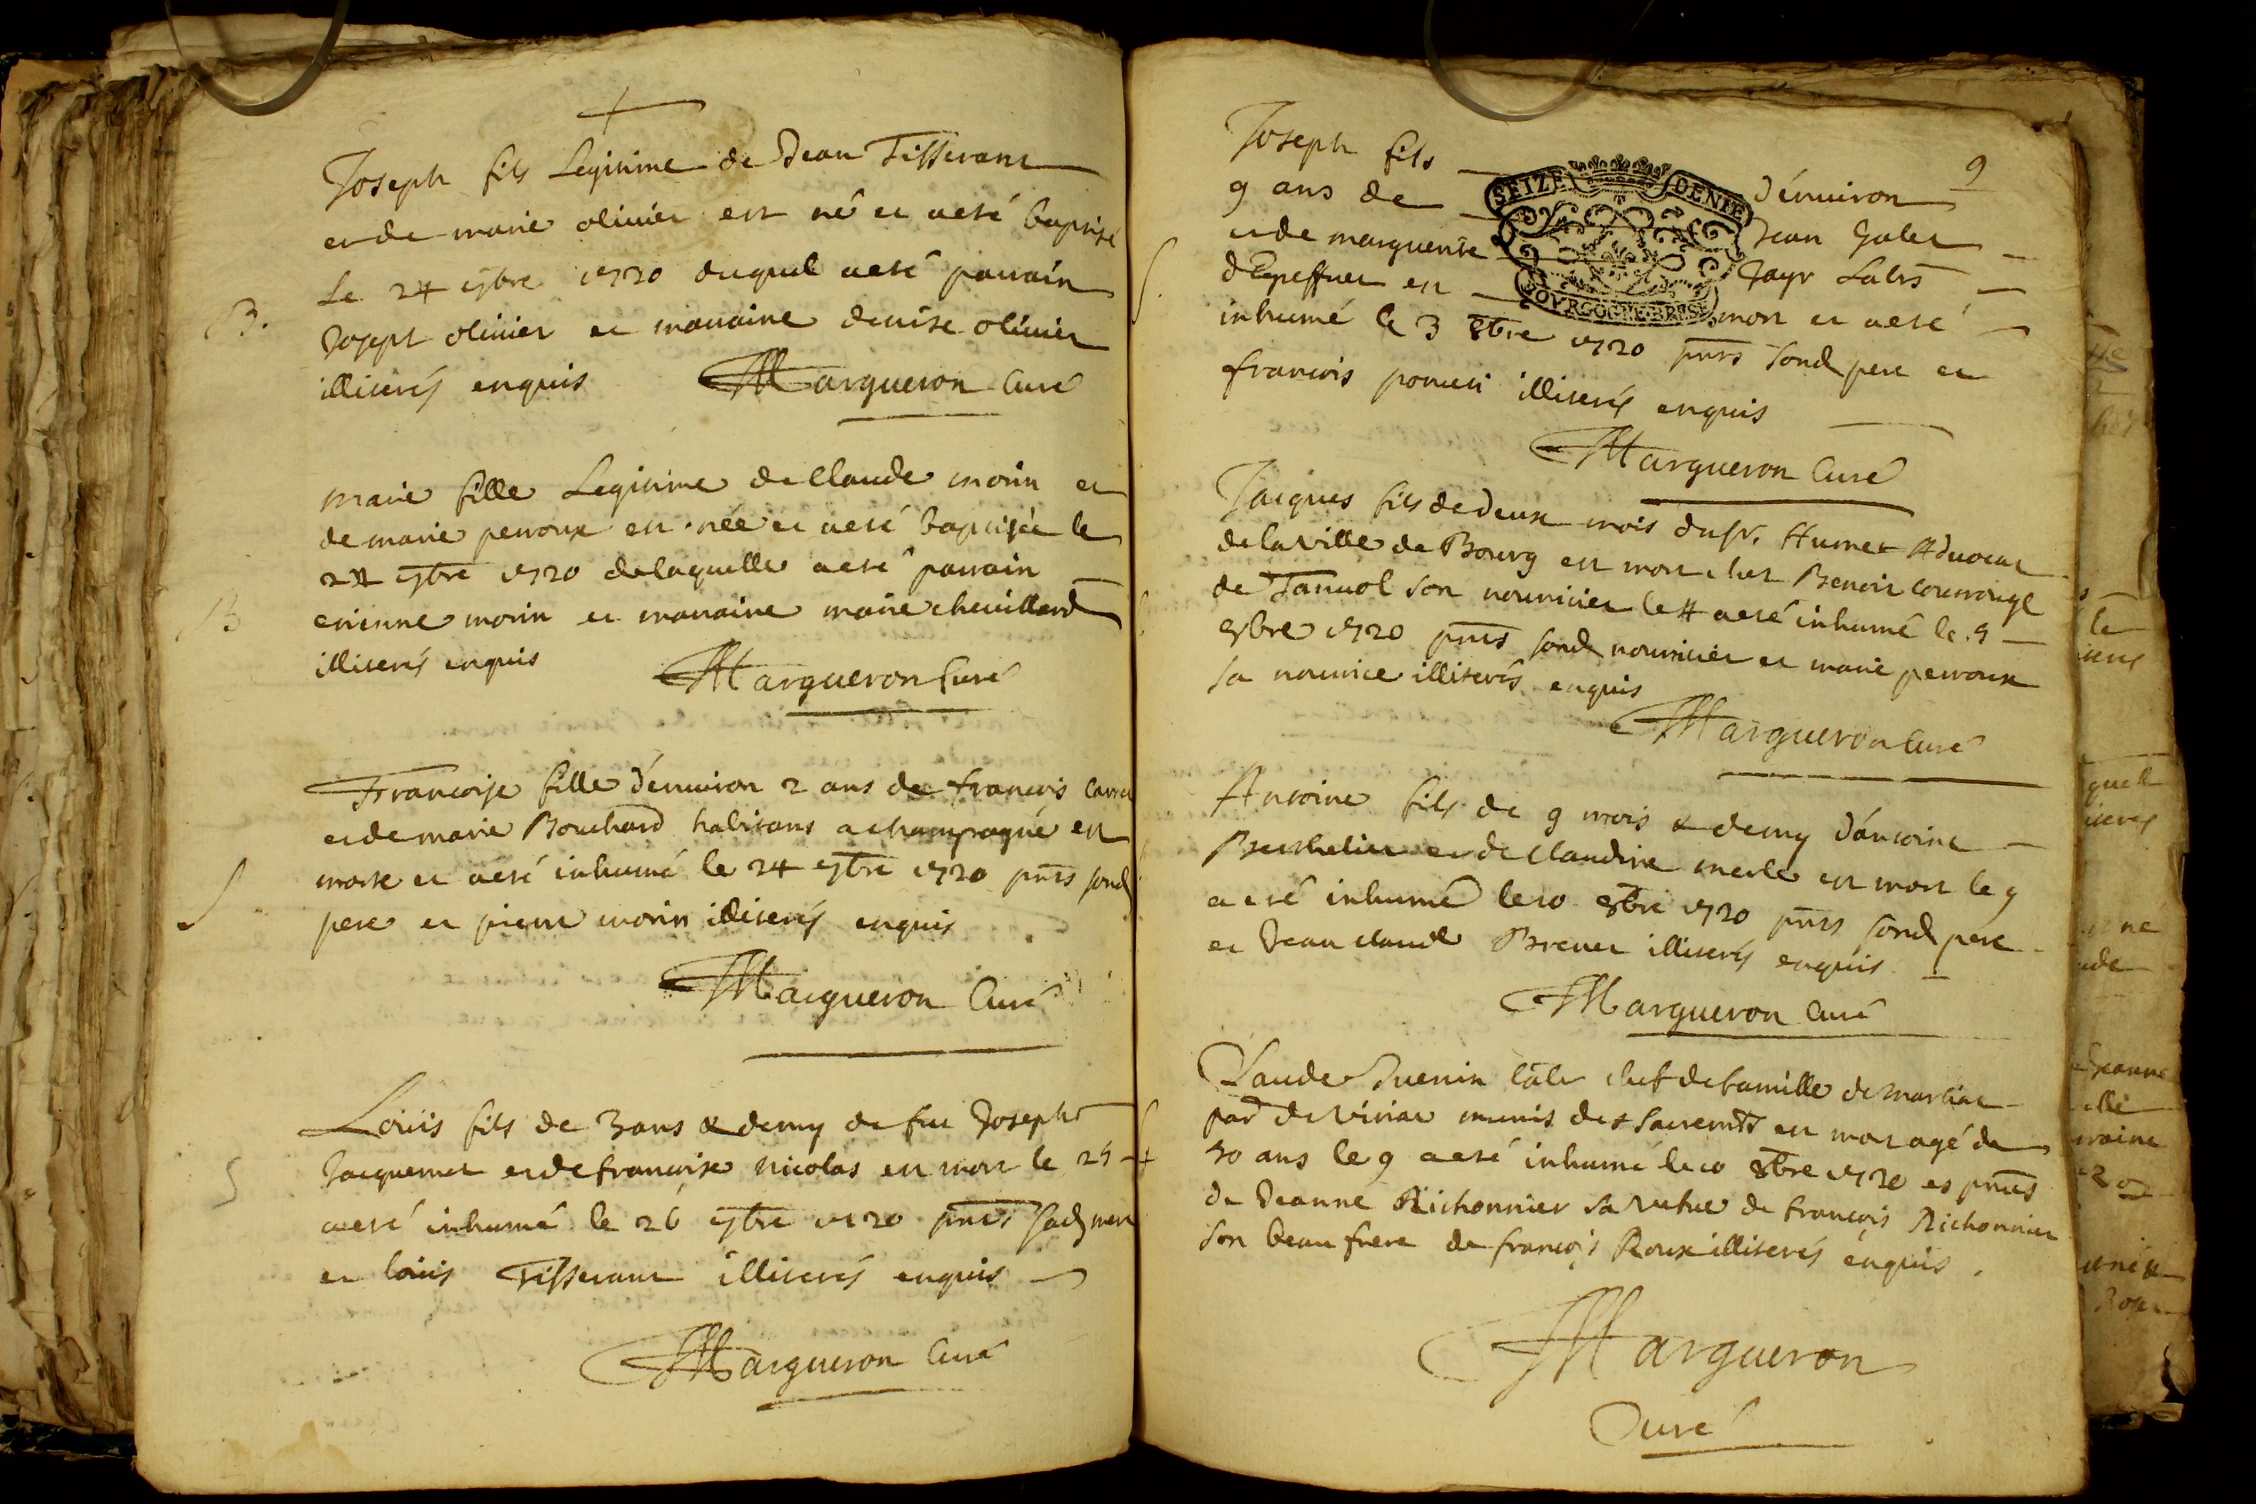 Joseph fils Legitime de Jean Tisserant
et de marie olivier est né et a eté baptisé
Le 24 7bre 1720 duquel a eté parrain
Josept olivier et marraine denise olivier
B.
illiterés enquis Margueron Curé
marie fille Legitime de Claude morin et
de marie perroux est née et a eté baptisée le
24 7bre 1720 de laquelle a eté parrain
B
etienne morin et marraine marie chevillard
illiterés enquis
Margueron Curé
Francoise fille d'environ 2 ans de francois
et de marie Bouchard habitans a champagne est
morte et a eté inhumé le 24 7bre 1720 pnts sond
S
pere et pierre morin illiterés enquis
Margueron Curé
Loüis fils de 3 ans & demy de feu Joseph
Jacquemet et de francoise nicolas est mort le 25
S
a eté inhumé le 26 7bre 1720 pnts sad mere
et loüis Tisserant illiterés enquis
Margueron Curé
9
Joseph fils d'environ
9 ans de Jean
et de marguerite
SEIZE DENIE
BOVRGOGNE BRES
est mort et a eté
S
inhumé le 3 8bre 1720 pnts sond pere et
francois illiterés enquis
Margueron Curé
Jacques fils de deux mois du sr. Humet Advocat
de la ville de Bourg est mort chet Benoit
de son nourricier le 4 a eté inhumé le 5
8bre 1720 pnts sond nourricier et marie perroux
sa nourrice illiterés enquis
Margueron Curé
Antoine fils de 9 mois & demy d'antoine
Berthelier et de Claudine merle est mort le 9
a eté inhumé le 10 8bre 1720 pnts sond pere
et Jean claude Brevet illiterés enquis
Margueron Curé
Claude Guenin chef de famille de
par de Viriat munis des sacremts est mort agé de
50 ans le 9 a eté inhumé le 10 8bre 1720 es pntes
de Jeanne Richonnier sa vefve de francois Richonnier
son beau frere de francois Roux illiterés enquis.
Margueron
Curé